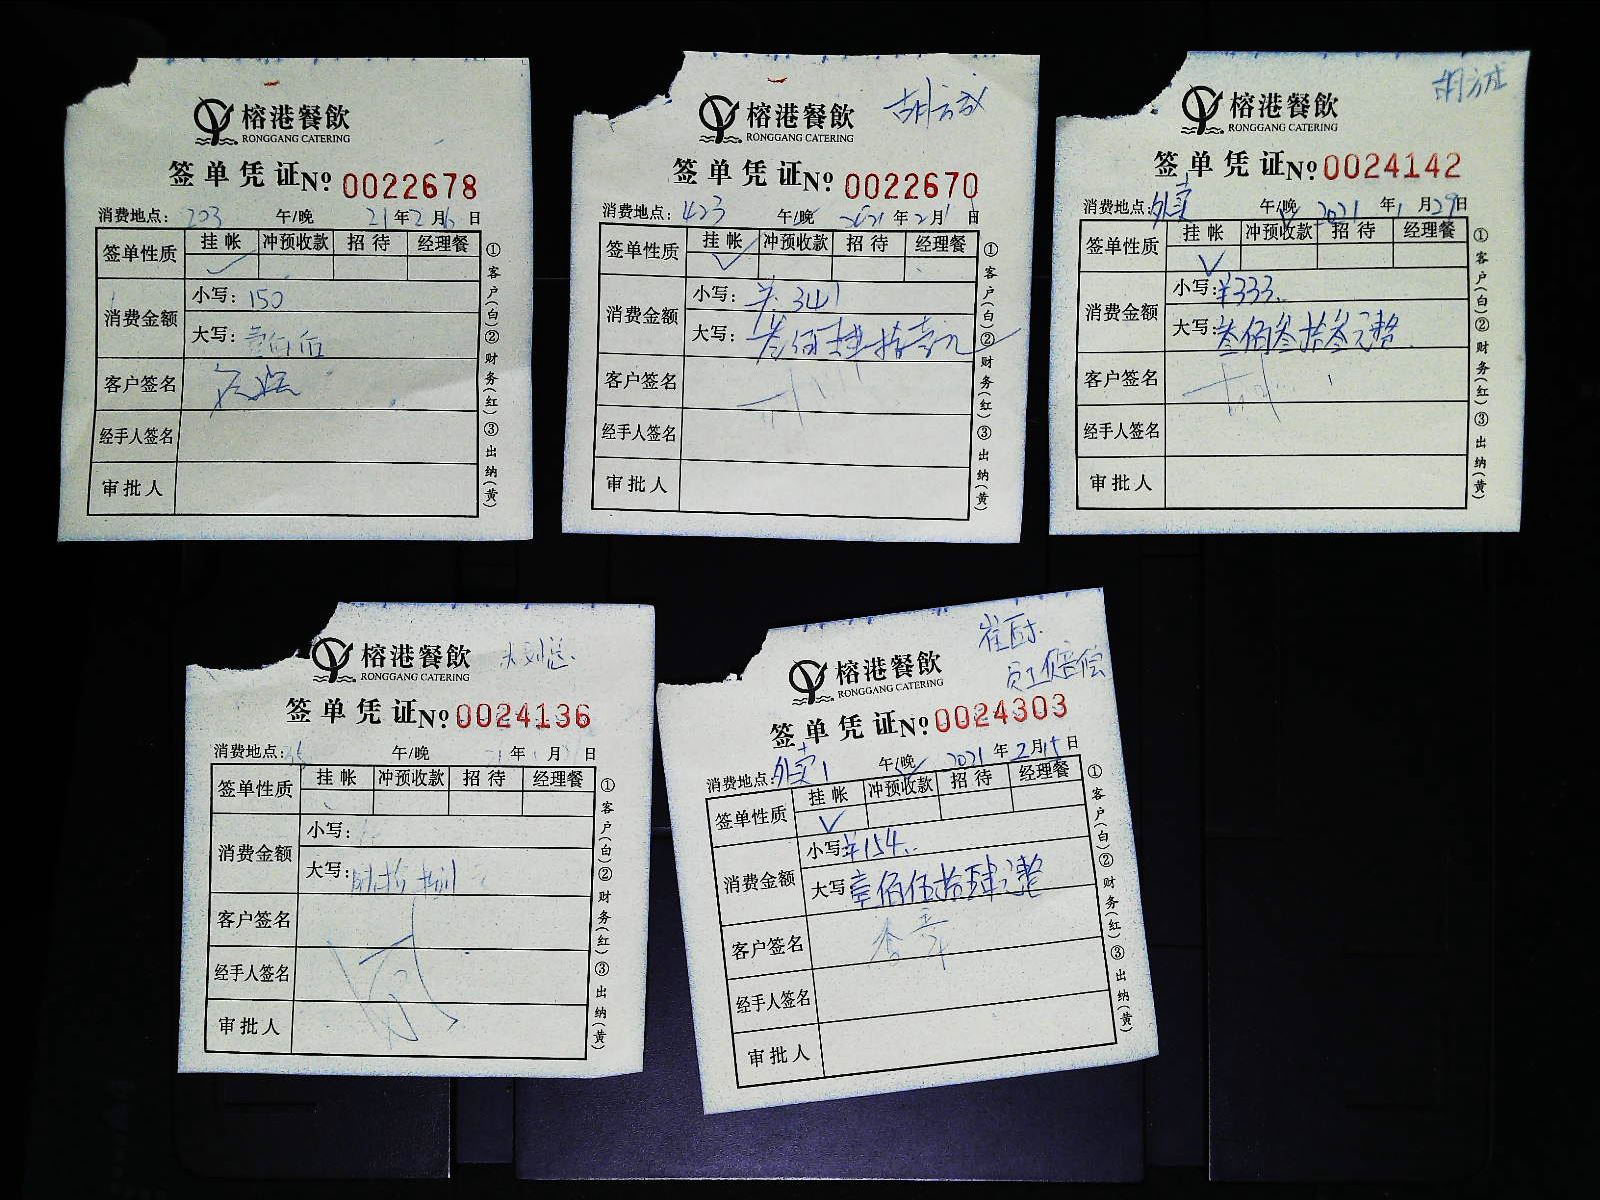 榕港餐飲
RONGGANG CATERING
签单凭证 No 0022678
消费地点: 203 午/晚 21年2月6日
签单性质 挂帐 冲预收款 招待 经理餐
✓
消费金额 小写: 150
大写: 壹佰伍
客户签名
经手人签名
审批人
①客户(白)②财务(红)③出纳(黄)
胡方成
榕港餐飲
RONGGANG CATERING
签单凭证 No 0022670
消费地点: 423 午/晚 2021年2月1日
签单性质 挂帐 冲预收款 招待 经理餐
✓
消费金额 小写: ¥: 341
大写: 叁佰肆拾壹元
客户签名
经手人签名
审批人
①客户(白)②财务(红)③出纳(黄)
榕港餐飲
RONGGANG CATERING
签单凭证 No 0024142
消费地点: 外卖 午/晚 2021年1月29日
签单性质 挂帐 冲预收款 招待 经理餐
✓
消费金额 小写: ¥333..
大写: 叁佰叁拾叁元整
客户签名
经手人签名
审批人
①客户(白)②财务(红)③出纳(黄)
榕港餐飲
RONGGANG CATERING
签单凭证 No 0024136
消费地点: 午/晚 21年1月日
签单性质 挂帐 冲预收款 招待 经理餐
消费金额 小写:
大写:
客户签名
经手人签名
审批人
①客户(白)②财务(红)③出纳(黄)
崔厨.
员工赔偿
榕港餐飲
RONGGANG CATERING
签单凭证 No 0024303
消费地点: 外卖1 午/晚 2021年2月15日
签单性质 挂帐 冲预收款 招待 经理餐
✓
消费金额 小写: ¥154..
大写: 壹佰伍拾肆元整
客户签名
经手人签名
审批人
①客户(白)②财务(红)③出纳(黄)